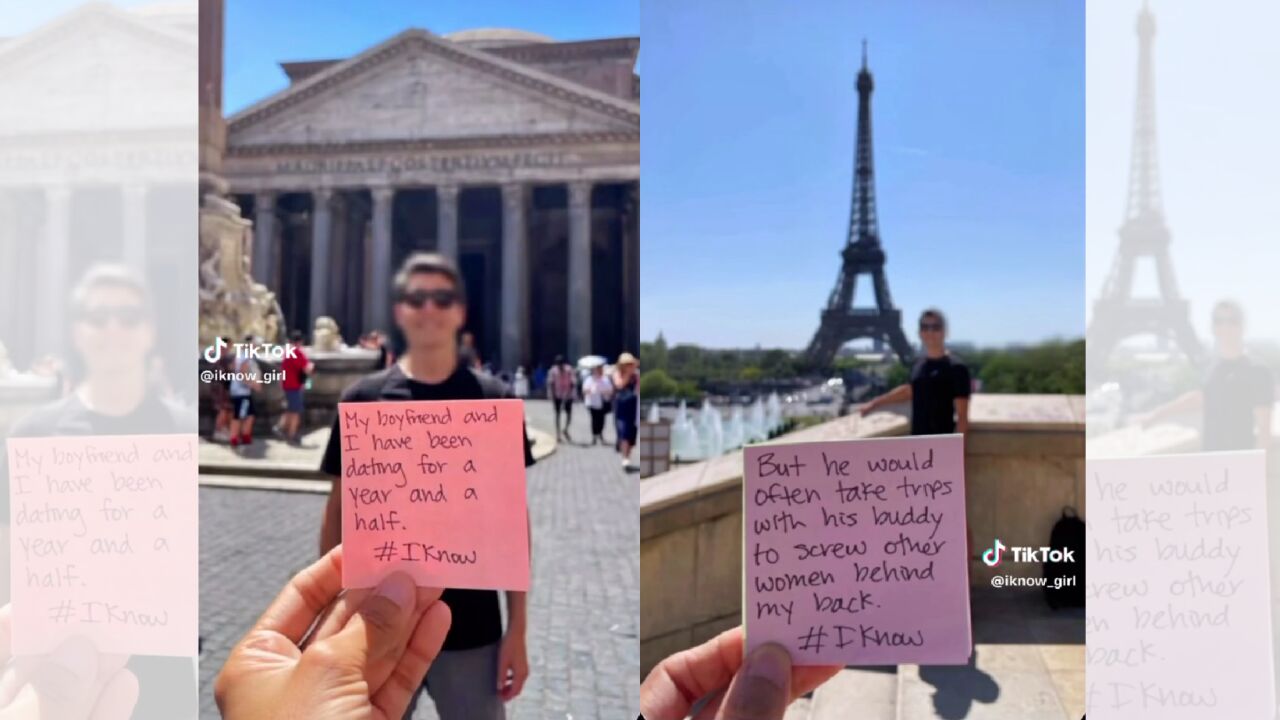 TikTok
@iknow_girl
My boyfriend and
I have been
dating for a
year and a
half.
#IKnow
But he would
often take trips
with his buddy
to screw other
women behind
my back.
#IKnow
TikTok
@iknow_girl
My boyfriend and
I have been
dating for a
year and a
half.
#IKnow
he would
take trips
his buddy
crew other
en behind
back.
#IKnow